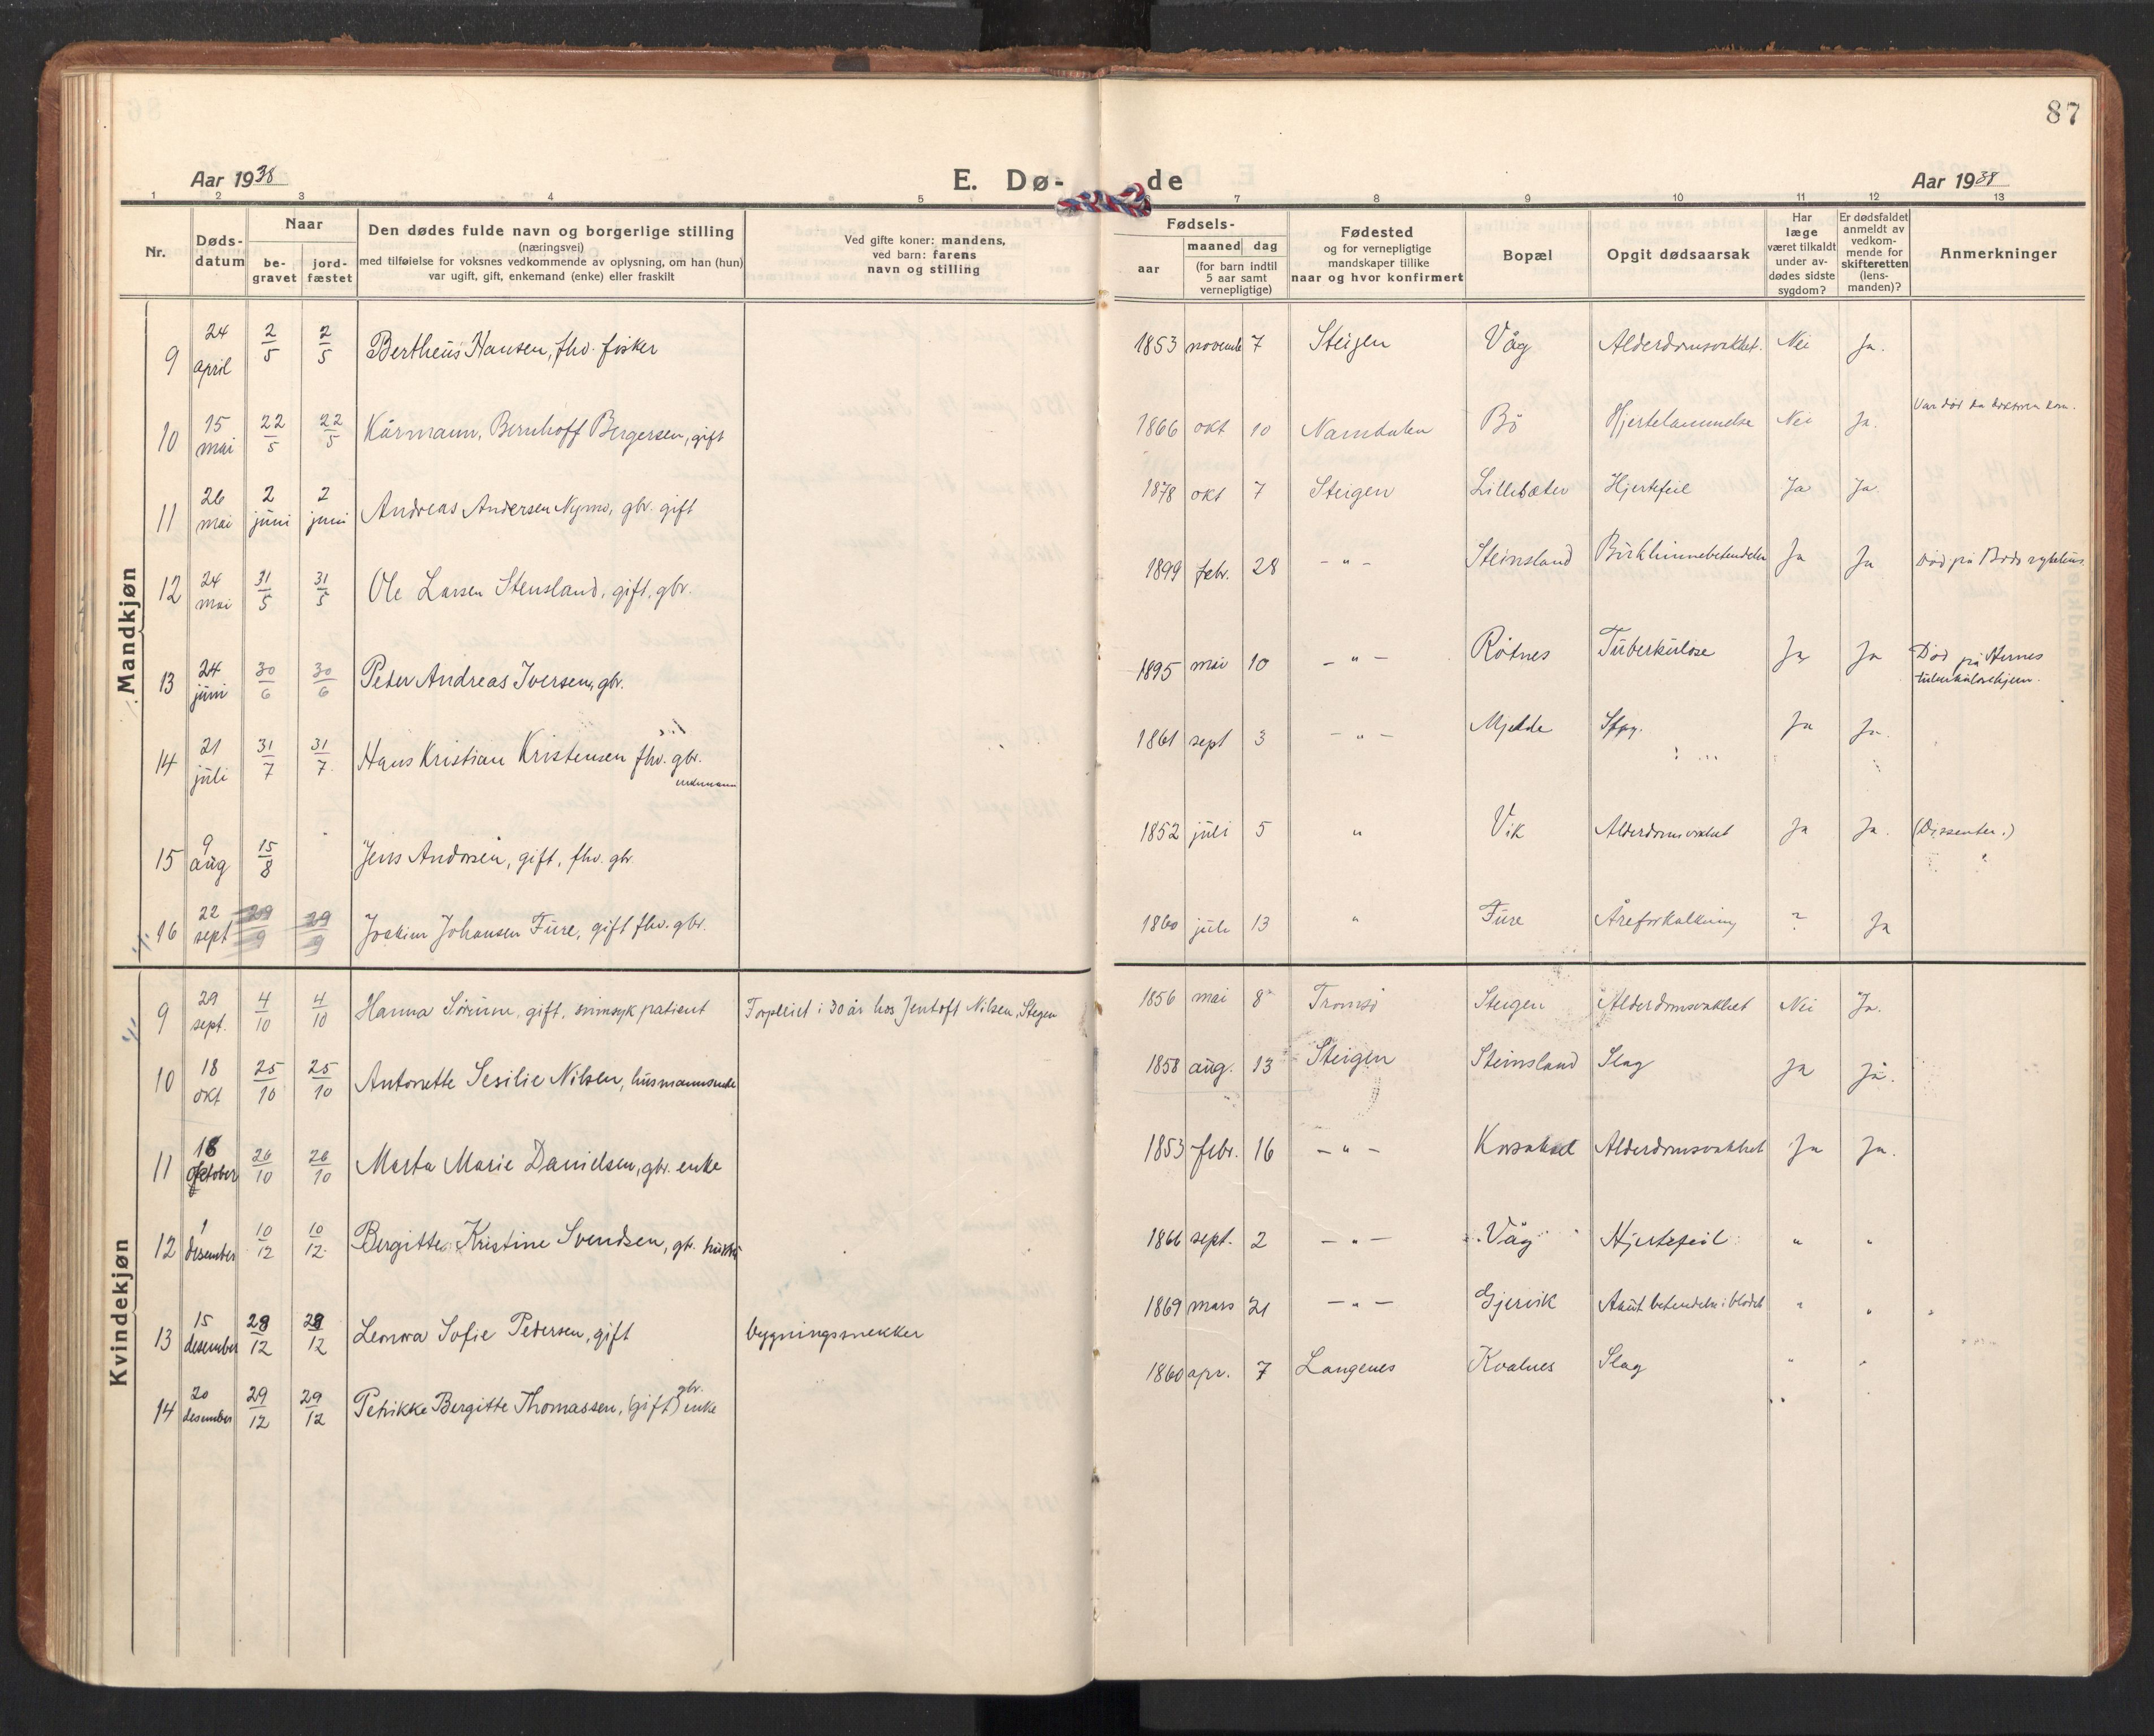 87
Aar 1938 E. Dø- de Aar 1938
1 2 3 4 5 7 8 9 10 11 12 13
Nr. Døds-datum Naar be-gravet jord-fæstet Den dødes fulde navn og borgerlige stilling (næringsvei) med tilføielse for voksnes vedkommende av oplysning, om han (hun) var ugift, gift, enkemand (enke) eller fraskilt Ved gifte koner: mandens, ved barn: farens navn og stilling Fødsels- aar maaned dag (for barn indtil 5 aar samt vernepligtige) Fødested og for vernepligtige mandskaper tillike naar og hvor konfirmert Bopæl Opgit dødsaarsak Har læge været tilkaldt under av-dødes sidste sygdom? Er dødsfaldet anmeldt av vedkom-mende for skifteretten (lens-manden)? Anmerkninger
Mandkjøn
9 24 april 2/5 2/5 Bertheus Hansen, fhv. fisker 1853 novemb 7 Steigen Våg Alderdomsvakhet. Nei Ja.
10 15 mai 22/5 22/5 Kårmann, Bernhoff Bergersen, gift 1866 okt 10 Namdalen Bö Hjertelammelse Nei Ja. Var död da doktoren kom.
11 26 mai 2 juni 2 juni Andreas Andersen Nymo, gbr. gift 1878 okt 7 Steigen Hjertefeil Ja Ja.
12 24 mai 31/5 31/5 Ole Larsen Stensland, gift, gbr. 1899 febr. 28 - " - Steinsland Ja Ja Död på Bodö sykehus.
13 24 juni 30/6 30/6 Peder Andreas Iversen, gbr. 1895 mai 10 - " - Rötnes Tuberkulose Ja Ja Död på tuberkulosehjem.
14 21 juli 31/7 31/7 Hans Kristian Kristensen fhv. gbr. enkemann 1861 sept 3 - " - Mjelde Ja Ja.
15 9 aug 15/8 Jens Andersen, gift, fhv. gbr. 1852 juli 5 " Vik Alderdomsvakhet Ja Ja. (Dissenter.)
16 22 sept 29/9 29/9 Joakim Johansen Fure, gift fhv. gbr. 1860 juli 13 " Fure Åreforkalkning ? Ja
Kvindekjøn
9 29 sept. 4/10 4/10 Hanna Sörine, gift, sinnsyk patient Forpleiet i 30 år hos Jentoft Nilsen, Stegen 1856 mai 8 Tromsö Steigen Alderdomsvakhet Nei Ja.
10 18 okt 25/10 25/10 Antonette Sesilie Nilsen, husmannsenke 1858 aug. 13 Steigen Steinsland Slag Ja Ja.
11 18 oktober 26/10 26/10 Marta Marie Danielsen, gbr. enke 1853 febr. 16 - " - Alderdomsvakhet Ja Ja.
12 1 desember 10/12 10/12 Bergitte Kristine Svendsen, gb. 1866 sept. 2 - " - Våg Hjertefeil " "
13 15 desember 28/12 28/12 Leonora Sofie Pedersen, gift bygningssnekker 1869 mars 21 - " - Gjervik Akut betendelse i blodet " " "
14 20 desember 29/12 29/12 Petrikke Bergitte Thomassen, (gift) gbr. enke 1860 apr. 7 Langenes Kvalnes Slag " "